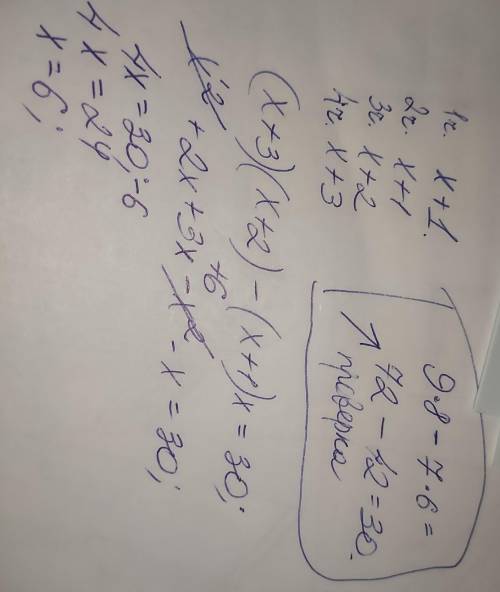 1ч. x+1.
2ч. x+1
3ч. x+2
4ч. x+3
9·8 − 7·6 =
72 − 42 = 30.
↑ проверка
(x+3)(x+2) − (x+1)x = 30;
x² + 2x + 3x +6 − x² − x = 30;
4x = 30; −6
4x = 24
x = 6;